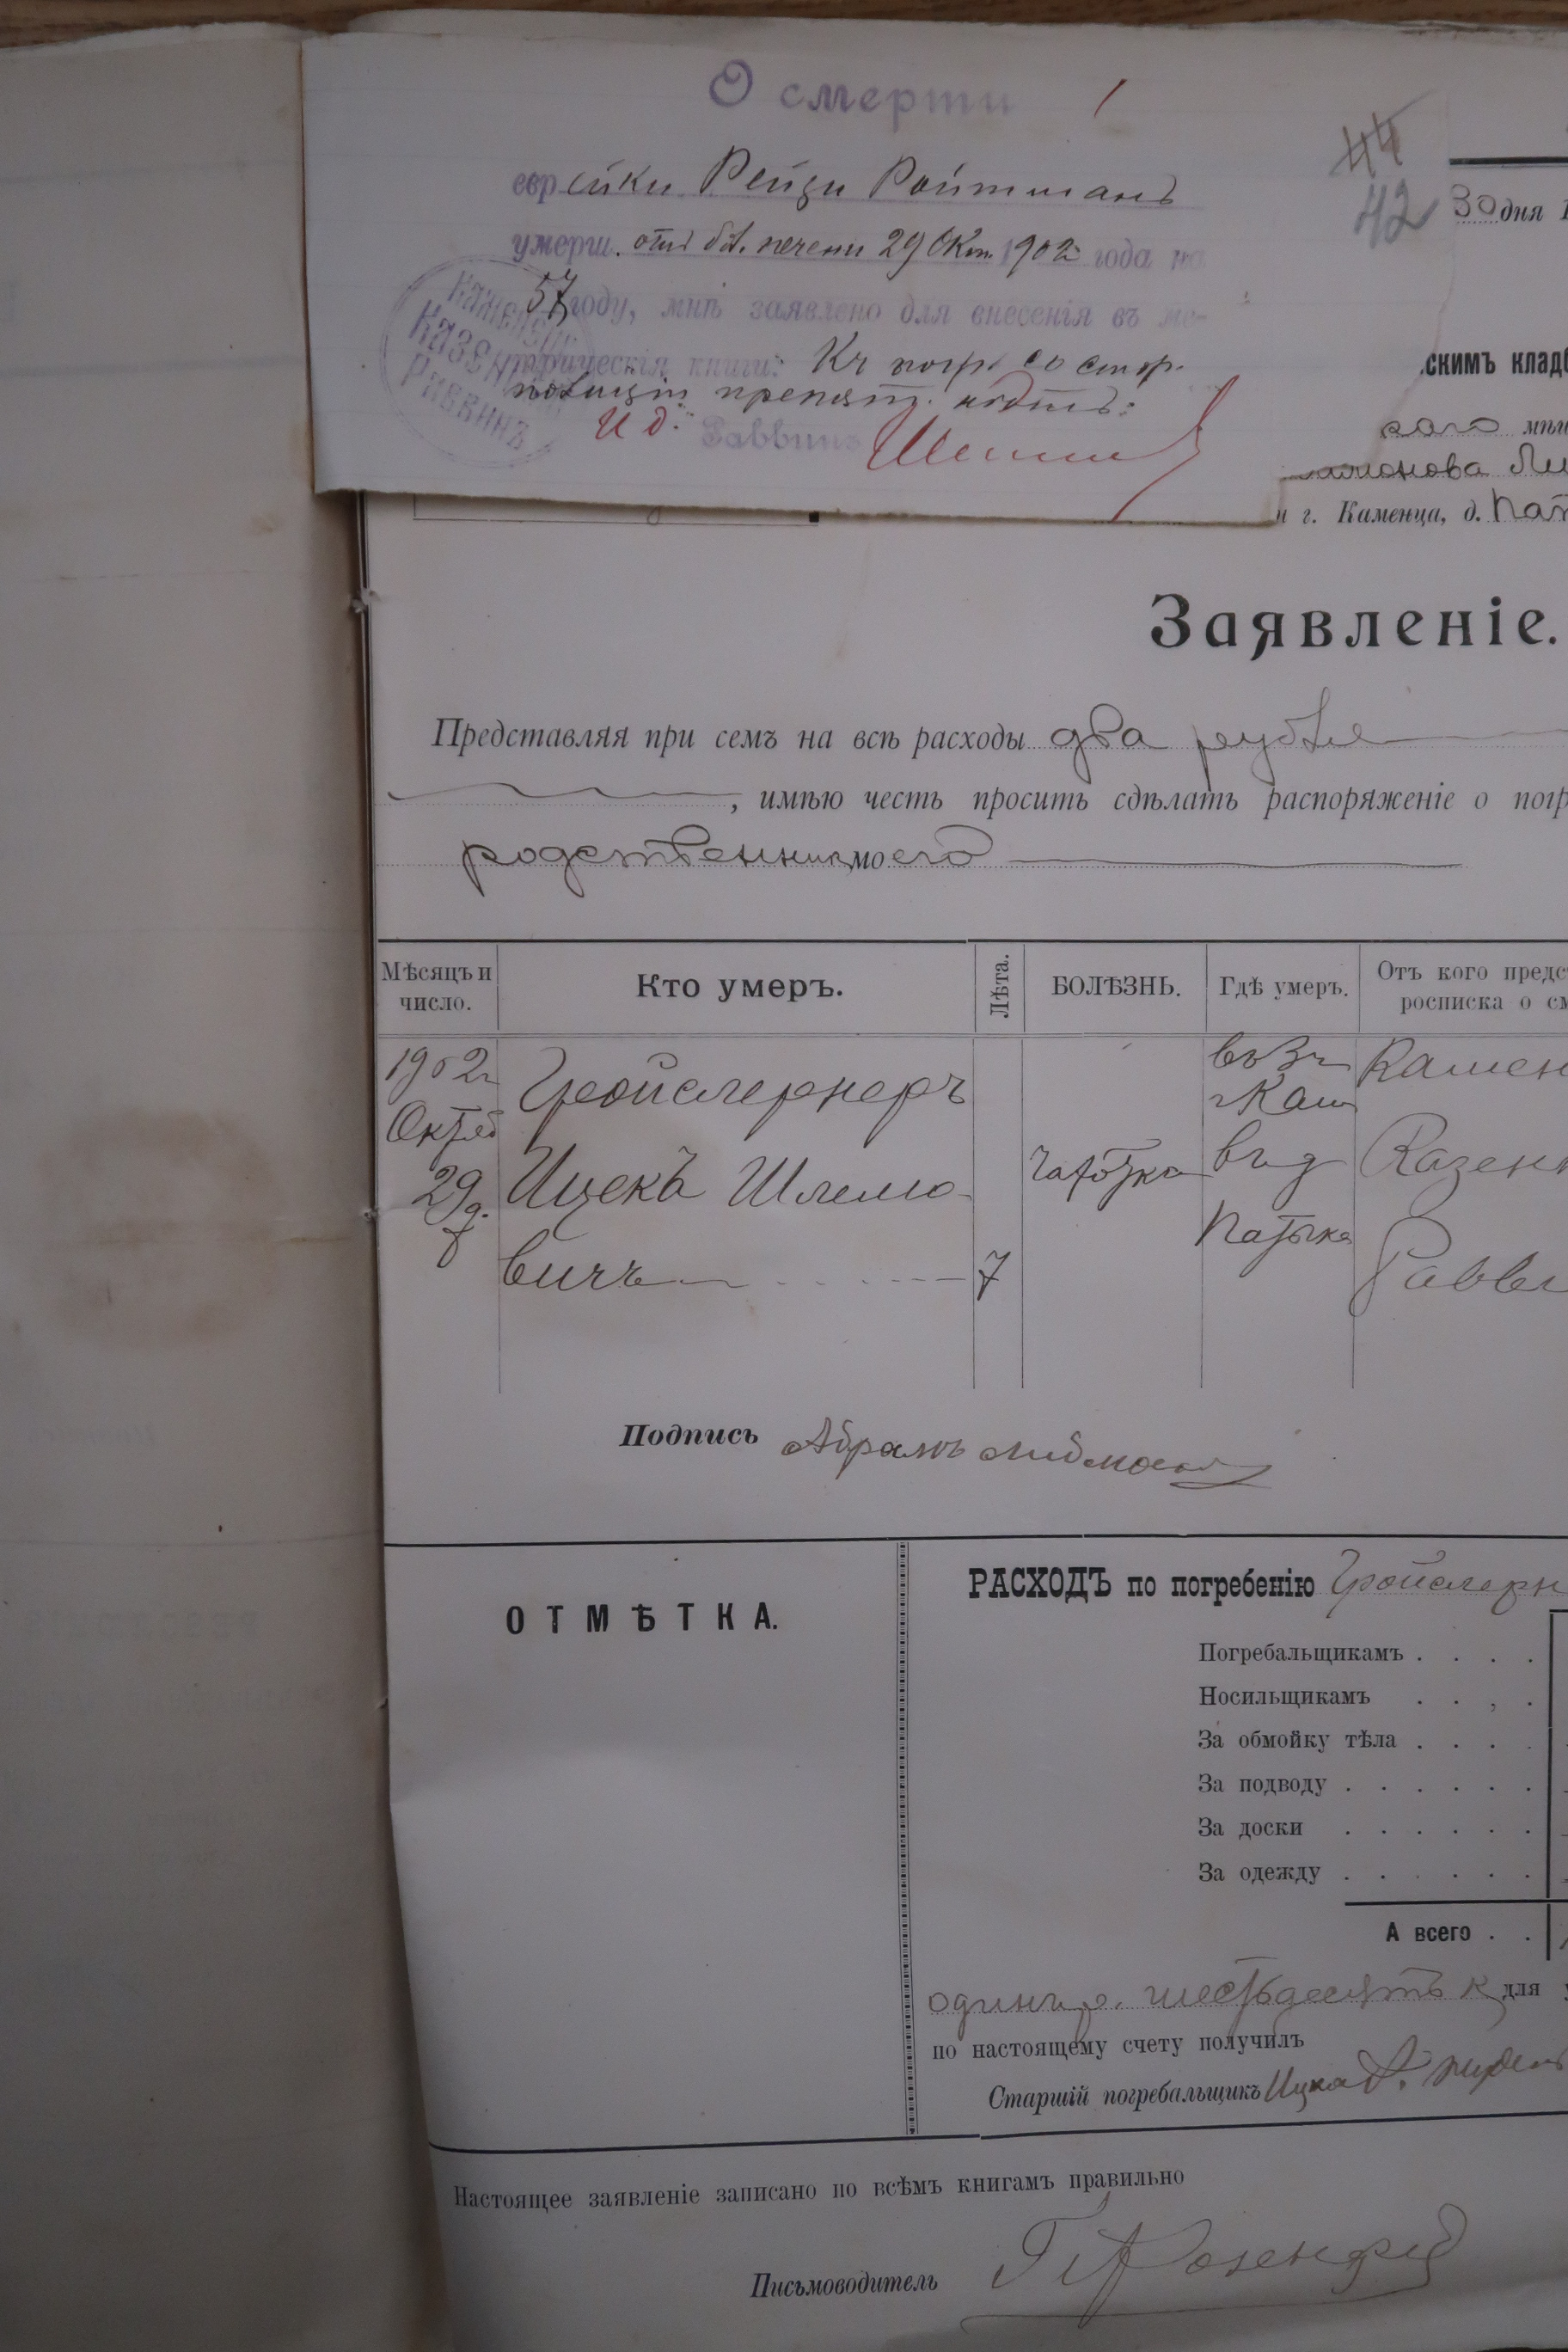 О смерти
еврейки Рейзи Ройтманъ
умерш. отъ бол. печени 29 Окт. 1902 года на
57 году, мнѣ заявлено для внесенія въ ме-
трическія книги: Къ погр. со стор.
полиціи препятс.
И д. Раввинъ
Каменец.
Казен
Раввинъ
44
42
30 дня 1
скимъ кладб
мѣщ
г. Каменца, д. Пат
Заявленіе.
Представляя при семъ на всѣ расходы два рубля
, имѣю честь просить сдѣлать распоряженіе о погр
родственника моего
Мѣсяцъ и число. Кто умеръ. Лѣта. БОЛѢЗНЬ. Гдѣ умеръ. Отъ кого предс
росписка о см
1902 г Гройслернеръ Камен
Октяб г Кам
29 д. Ицекъ Шлемо- чахотка въ д Казенн
Патыка
вичъ 7 Равви
Подпись Абрамъ
ОТМѢТКА.
РАСХОДЪ по погребенію Гройслерн
Погребальщикамъ . . . .
Носильщикамъ . . , .
За обмойку тѣла . . . .
За подводу . . . . . .
За доски . . . . . .
За одежду . . . . . .
А всего . .
одинъ р. шестьдесятъ к для
по настоящему счету получилъ
Старшій погребальщикъ Ицко
Настоящее заявленіе записано по всѣмъ книгамъ правильно
Письмоводитель